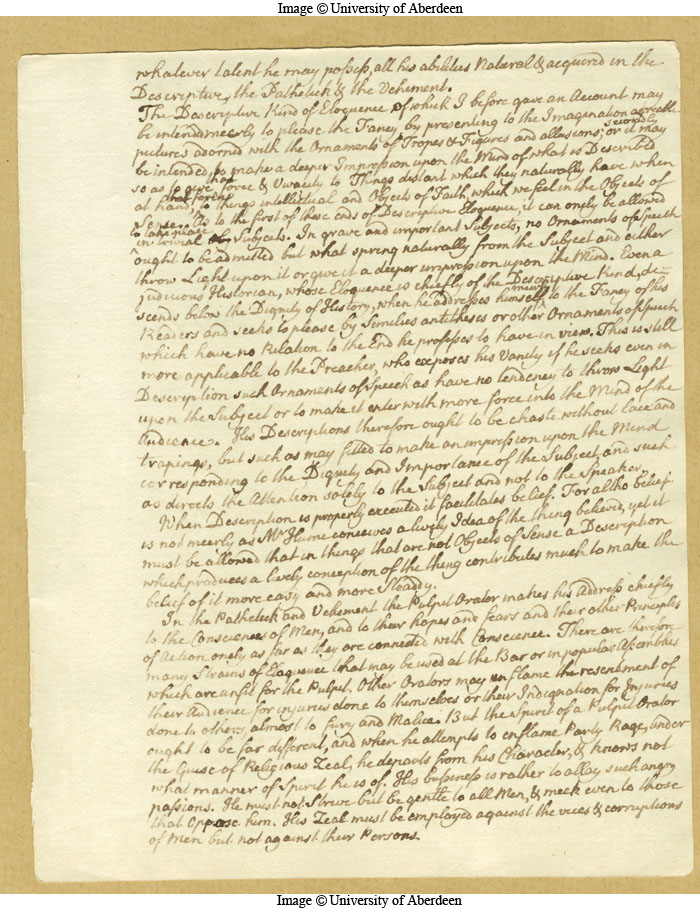 Image © University of Aberdeen
whatever talent he may possess, all his abilities Natural & acquired in the
Descriptive, the Pathetick & the Vehement.
The Descriptive Kind of Eloquence of which I before gave an Account may
be intended meerly to please the Fancy by presenting to the Imagination agreable
pictures adorned with the Ornaments of Tropes & Figures and allusions; or secondly it may
be intended to make a deeper Impression upon the Mind of what is Described
so as to give that force & Vivacity to Things distant which they naturally have when
at hand, & to things intellectual and Objects of Faith which we feel in the Objects of
Sense. As to the first of these ends of Descriptive Eloquence, it can only be allowed
in trivial Subjects. In grave and important Subjects, no Ornaments of Speech
ought to be admitted but what spring naturally from the Subject and either
throw Light upon it or give it a deeper impression upon the Mind. Even a
judicious Historian, whose Eloquence is chiefly of the Descriptive Kind, de-
scends below the Dignity of History, when he addresses himself to the Fancy of his
Readers and seeks to please by Similies antitheses or other Ornaments of Speech
which have no Relation to the End he professes to have in view. This is still
more applicable to the Preacher, who exposes his Vanity if he seeks even in
Description such Ornaments of Speech as have no tendency to throw Light
upon the Subject or to make it enter with more force into the Mind of the
Audience. His Descriptions therefore ought to be chaste without lace and
trapings, but such as may fitted to make an impression upon the Mind
corresponding to the Dignity and Importance of the Subject, and such
as directs the Attention solely to the Subject and not to the Speaker.
When Description is properly executed it facilitates belief. For altho belief
is not meerly as Mr Hume conceives a lively Idea of the thing believed, yet it
must be allowed that in things that are not Objects of Sense a Description
which produces a lively conception of the thing contributes much to make the
belief of it more easy and more Steady.
In the Pathetick and Vehement the Pulpit Orator makes his Address chiefly
to the Consciences of Men, and to their hopes and fears and their other Principles
of Action onely as far as they are connected with Conscience. There are therefore
many Strains of Eloquence that may be used at the Bar or in popular Assemblies
which are unfit for the Pulpit. Other Orators may enflame the resentment of
their Audience for injuries done to themselves or their Indignation for Injuries
done to others, almost to fury and Malice. But the Spirit of a Pulpit Orator
ought to be far different, and when he attempts to enflame Party Rage, under
the Guise of Religious Zeal, he departs from his Character, & knows not
what manner of Spirit he is of. His bussiness is rather to allay such angry
passions. He must not Strive but be gentle to all Men, & meek even to those
that Oppose him. His Zeal must be employed against the vices & corruptions
of Men but not against their Persons.
Image © University of Aberdeen